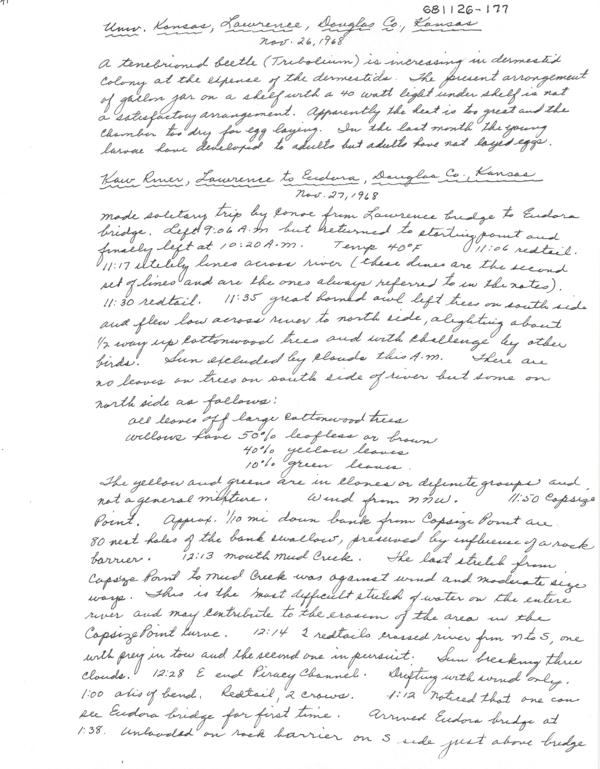 681126-177
Univ. Kansas, Lawrence, Douglas Co., Kansas
Nov. 26, 1968
A tenebrionid beetle (Tribolium) is increasing in dermestid
colony at the expense of the dermestids. The present arrangement
of gallon jar on a shelf with a 40 watt light under shelf is not
a satisfactory arrangement. Apparently the heat is too great and the
chamber too dry for egg laying. In the last month the young
larvae have developed to adults but adults have not layed eggs.
Kaw River, Lawrence to Eudora, Douglas Co., Kansas
Nov. 27, 1968
Made solitary trip by canoe from Lawrence bridge to Eudora
bridge. Left 9:06 A.M. but returned to starting point and
finally left at 10:20 A.M. Temp 40°F 11:06 redtail.
11:17 utility lines across river (these lines are the second
set of lines and are the ones always referred to in the notes).
11:30 redtail. 11:35 great horned owl left trees on south side
and flew low across river to north side, alighting about
1/2 way up cottonwood trees and with challenge by other
birds. Sun occluded by clouds this A.M. There are
no leaves on trees on south side of river but some on
north side as follows:
all leaves off large cottonwood trees
willows have 50% leafless or brown
40% yellow leaves
10% green leaves
The yellow and greens are in clones or definite groups and
not a general mixture. Wind from NNW. 11:50 Capsize
Point. Approx. 1/10 mi down bank from Capsize Point are
80 nest holes of the bank swallow, preserved by influence of a rock
barrier. 12:13 mouth Mud Creek. The last stretch from
Capsize Point to Mud Creek was against wind and moderate size
waves. This is the most difficult stretch of water on the entire
river and may contribute to the erosion of the area in the
Capsize Point curve. 12:14 2 redtails crossed river from N to S, one
with prey in tow and the second one in pursuit. Sun breaking thru
clouds. 12:28 E end Piracy Channel. Drifting with wind only.
1:00 of bend. Redtail, 2 crows. 1:12 Noticed that one can
see Eudora bridge for first time. Arrived Eudora bridge at
1:38. Unloaded on rock barrier on S side just above bridge